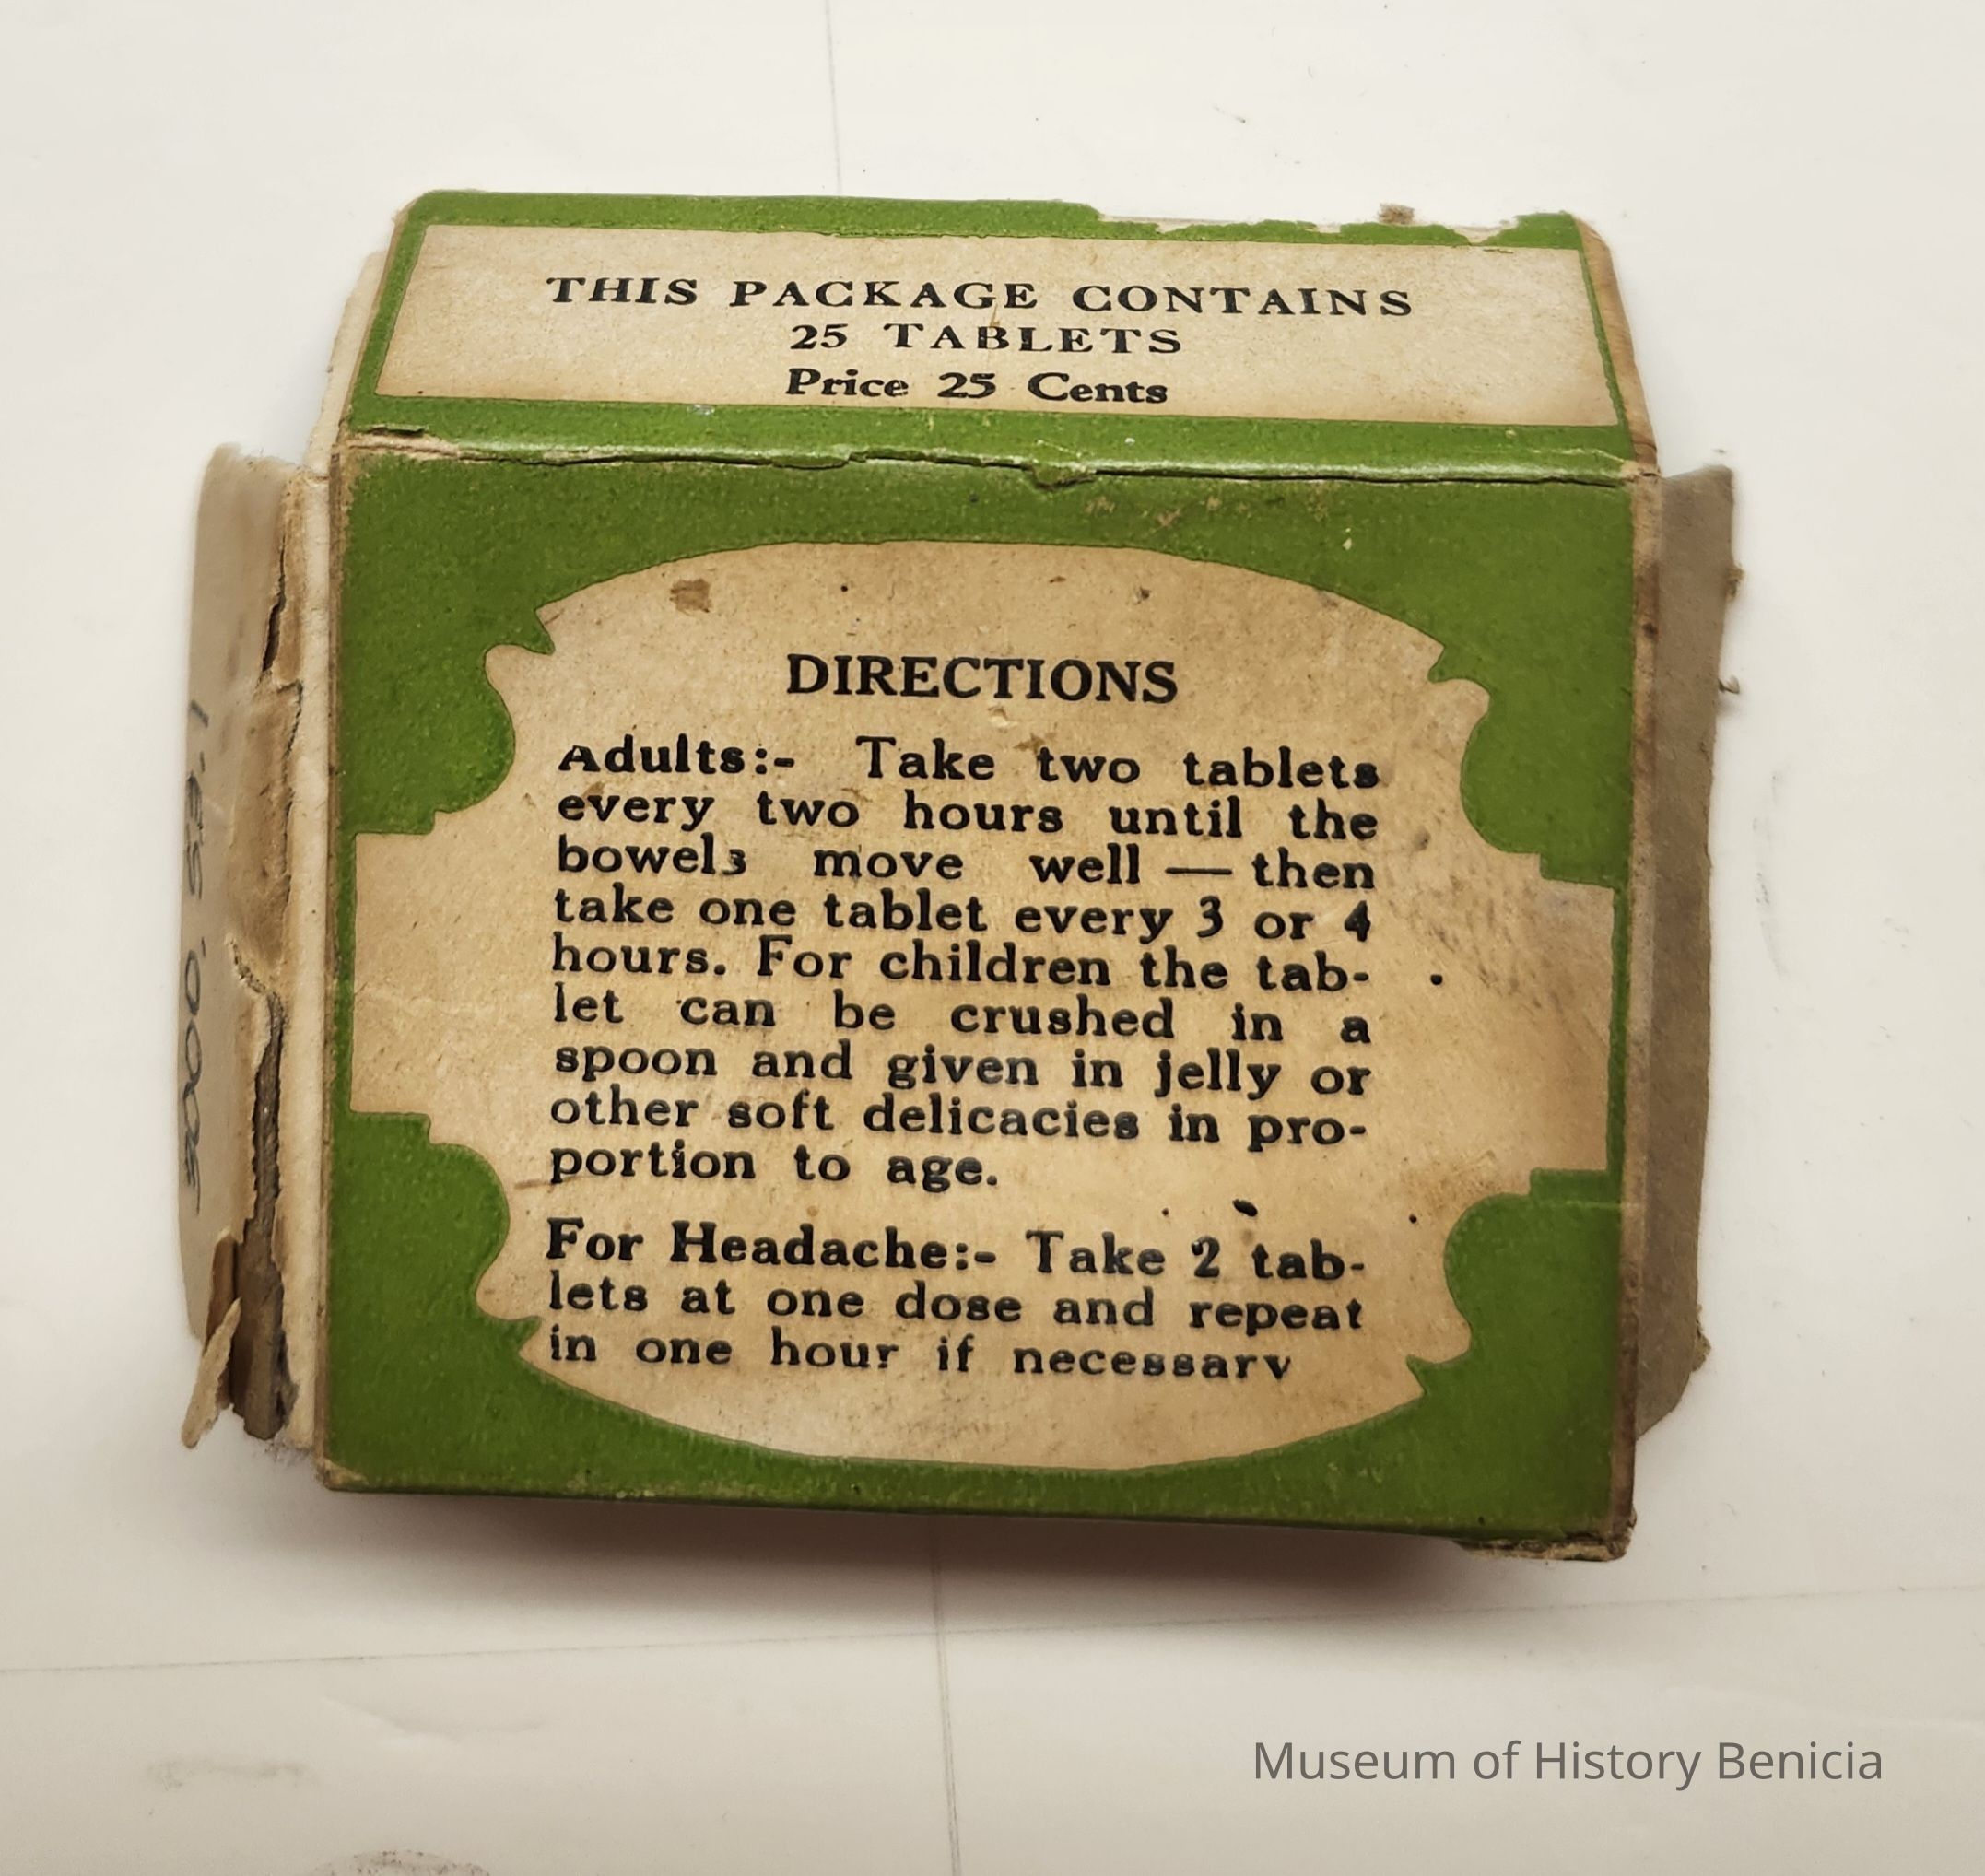 THIS PACKAGE CONTAINS
25 TABLETS
Price 25 Cents
DIRECTIONS
Adults:- Take two tablets
every two hours until the
bowels move well — then
take one tablet every 3 or 4
hours. For children the tab-
let can be crushed in a
spoon and given in jelly or
other soft delicacies in pro-
portion to age.
For Headache:- Take 2 tab-
lets at one dose and repeat
in one hour if necessary
Museum of History Benicia